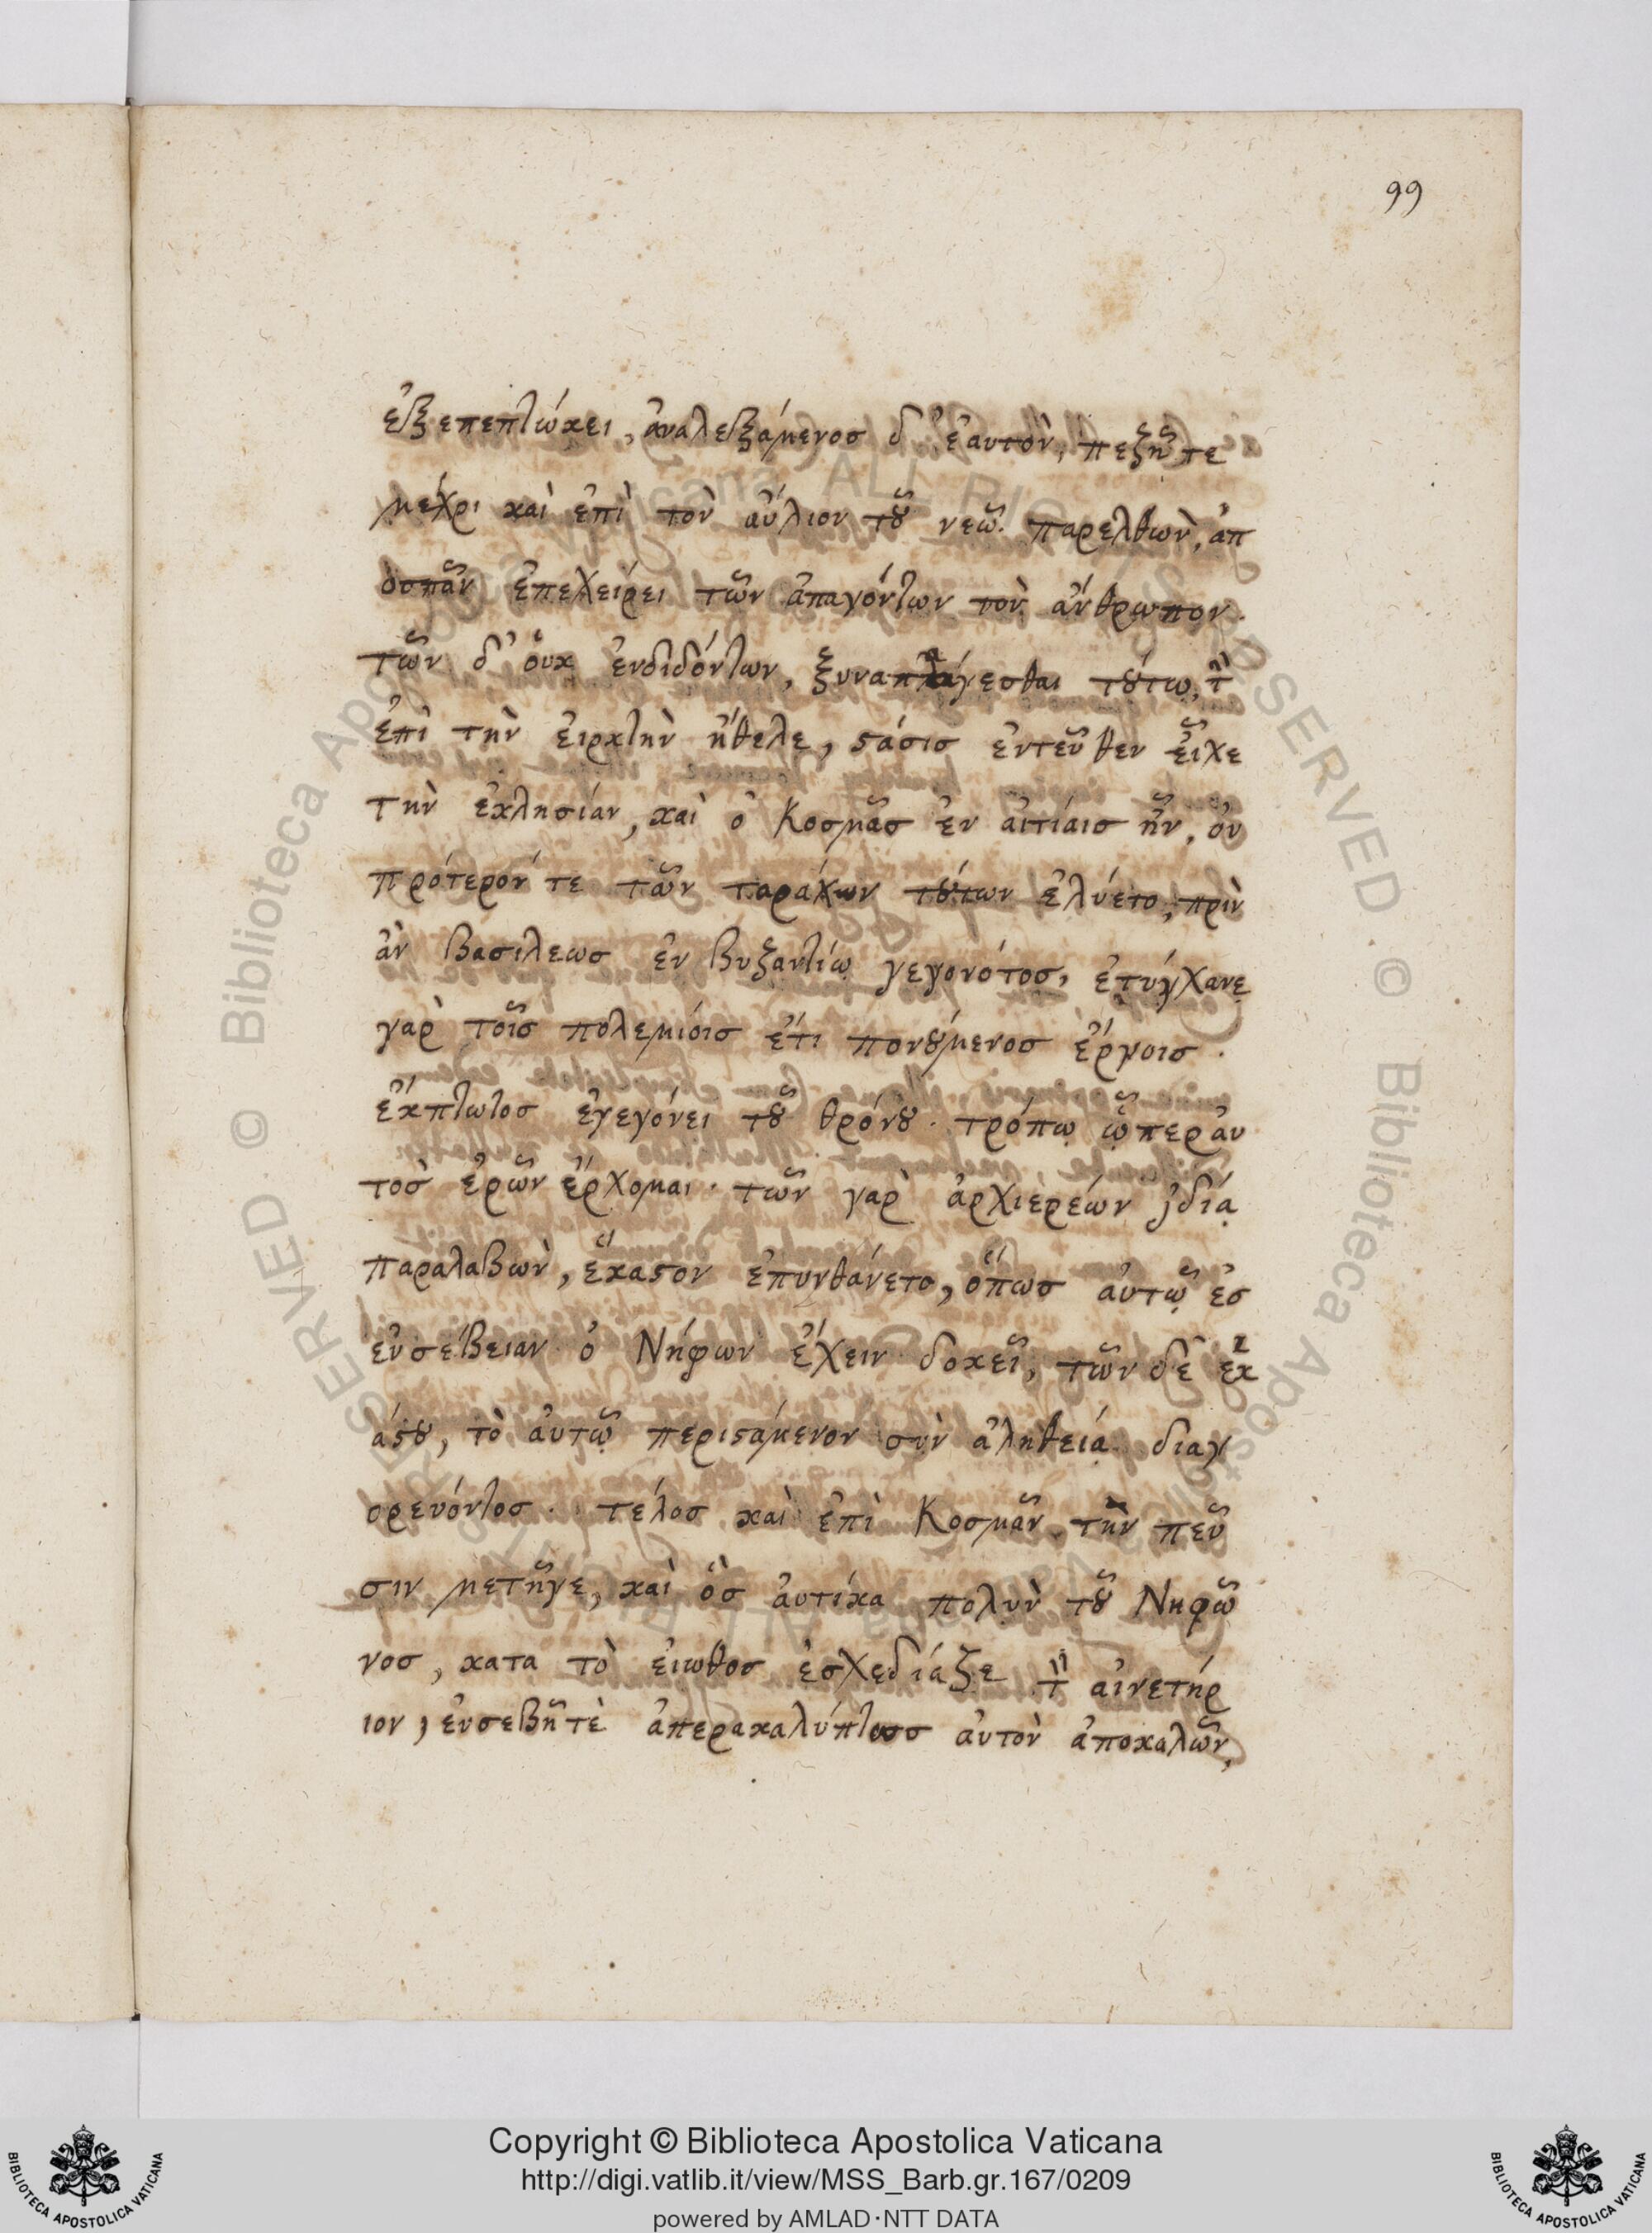 99
ἐξεπεπτώκει, ἀναλεξάμενος δ' ἑαυτὸν, πεζῆ τε
μέχρι καὶ ἐπὶ τὸν αὔλιον τοῦ νεῶ παρελθὼν, ἀπ
οσπᾶν ἐπεχείρει τῶν ἀπαγόντων τὸν ἄνθρωπον.
τῶν δ' οὐκ ἐνδιδόντων, ξυναπάγεσθαι τούτῳ,
ἐπὶ τὴν εἱρκτὴν ἤθελε, ϛάσις ἐντεῦθεν εἶχε
τὴν ἐκλησίαν, καὶ ὁ Κοσμᾶς ἐν αἰτίαις ἦν, οὐ
πρότερόν τε τῶν ταράχων τούτων ἐλύετο, πρὶν
ἂν βασιλεως ἐν Βυζαντίῳ γεγονότος, ἐτύγχανε
γαρ τοῖς πολεμίοις ἔτι πονούμενος ἔργοις.
ἔκπτωτος ἐγεγόνει τοῦ θρόνου. τρόπῳ ᾧπερ αὐ
τὸς ἐρῶν ἔρχομαι. τῶν γαρ ἀρχιερέων ἰδίᾳ
παραλαβὼν, ἕκαϛον ἐπυνθάνετο, ὅπως αὐτῷ ἐς
εὐσέβειαν ὁ Νήφων ἔχειν δοκεῖ, τῶν δὲ ἑκ
άϛου, τὸ αὐτῷ περιϛάμενον σὺν ἀληθείᾳ διαγ
ορεύοντος. τέλος καὶ ἐπὶ Κοσμᾶν τὴν πεῦ
σιν μετῆγε, καὶ ὃς αὐτίκα πολὺν τοῦ Νηφῶ
νος, κατα τὸ εἰωθος ἐσχεδίαζε αἰνετήρ
ιον, εὐσεβῆ τὲ ἀπερακαλύπτως αὐτὸν ἀποκαλῶν,
Copyright © Biblioteca Apostolica Vaticana
http://digi.vatlib.it/view/MSS_Barb.gr.167/0209
powered by AMLAD·NTT DATA
BIBLIOTECA APOSTOLICA VATICANA
BIBLIOTECA APOSTOLICA VATICANA